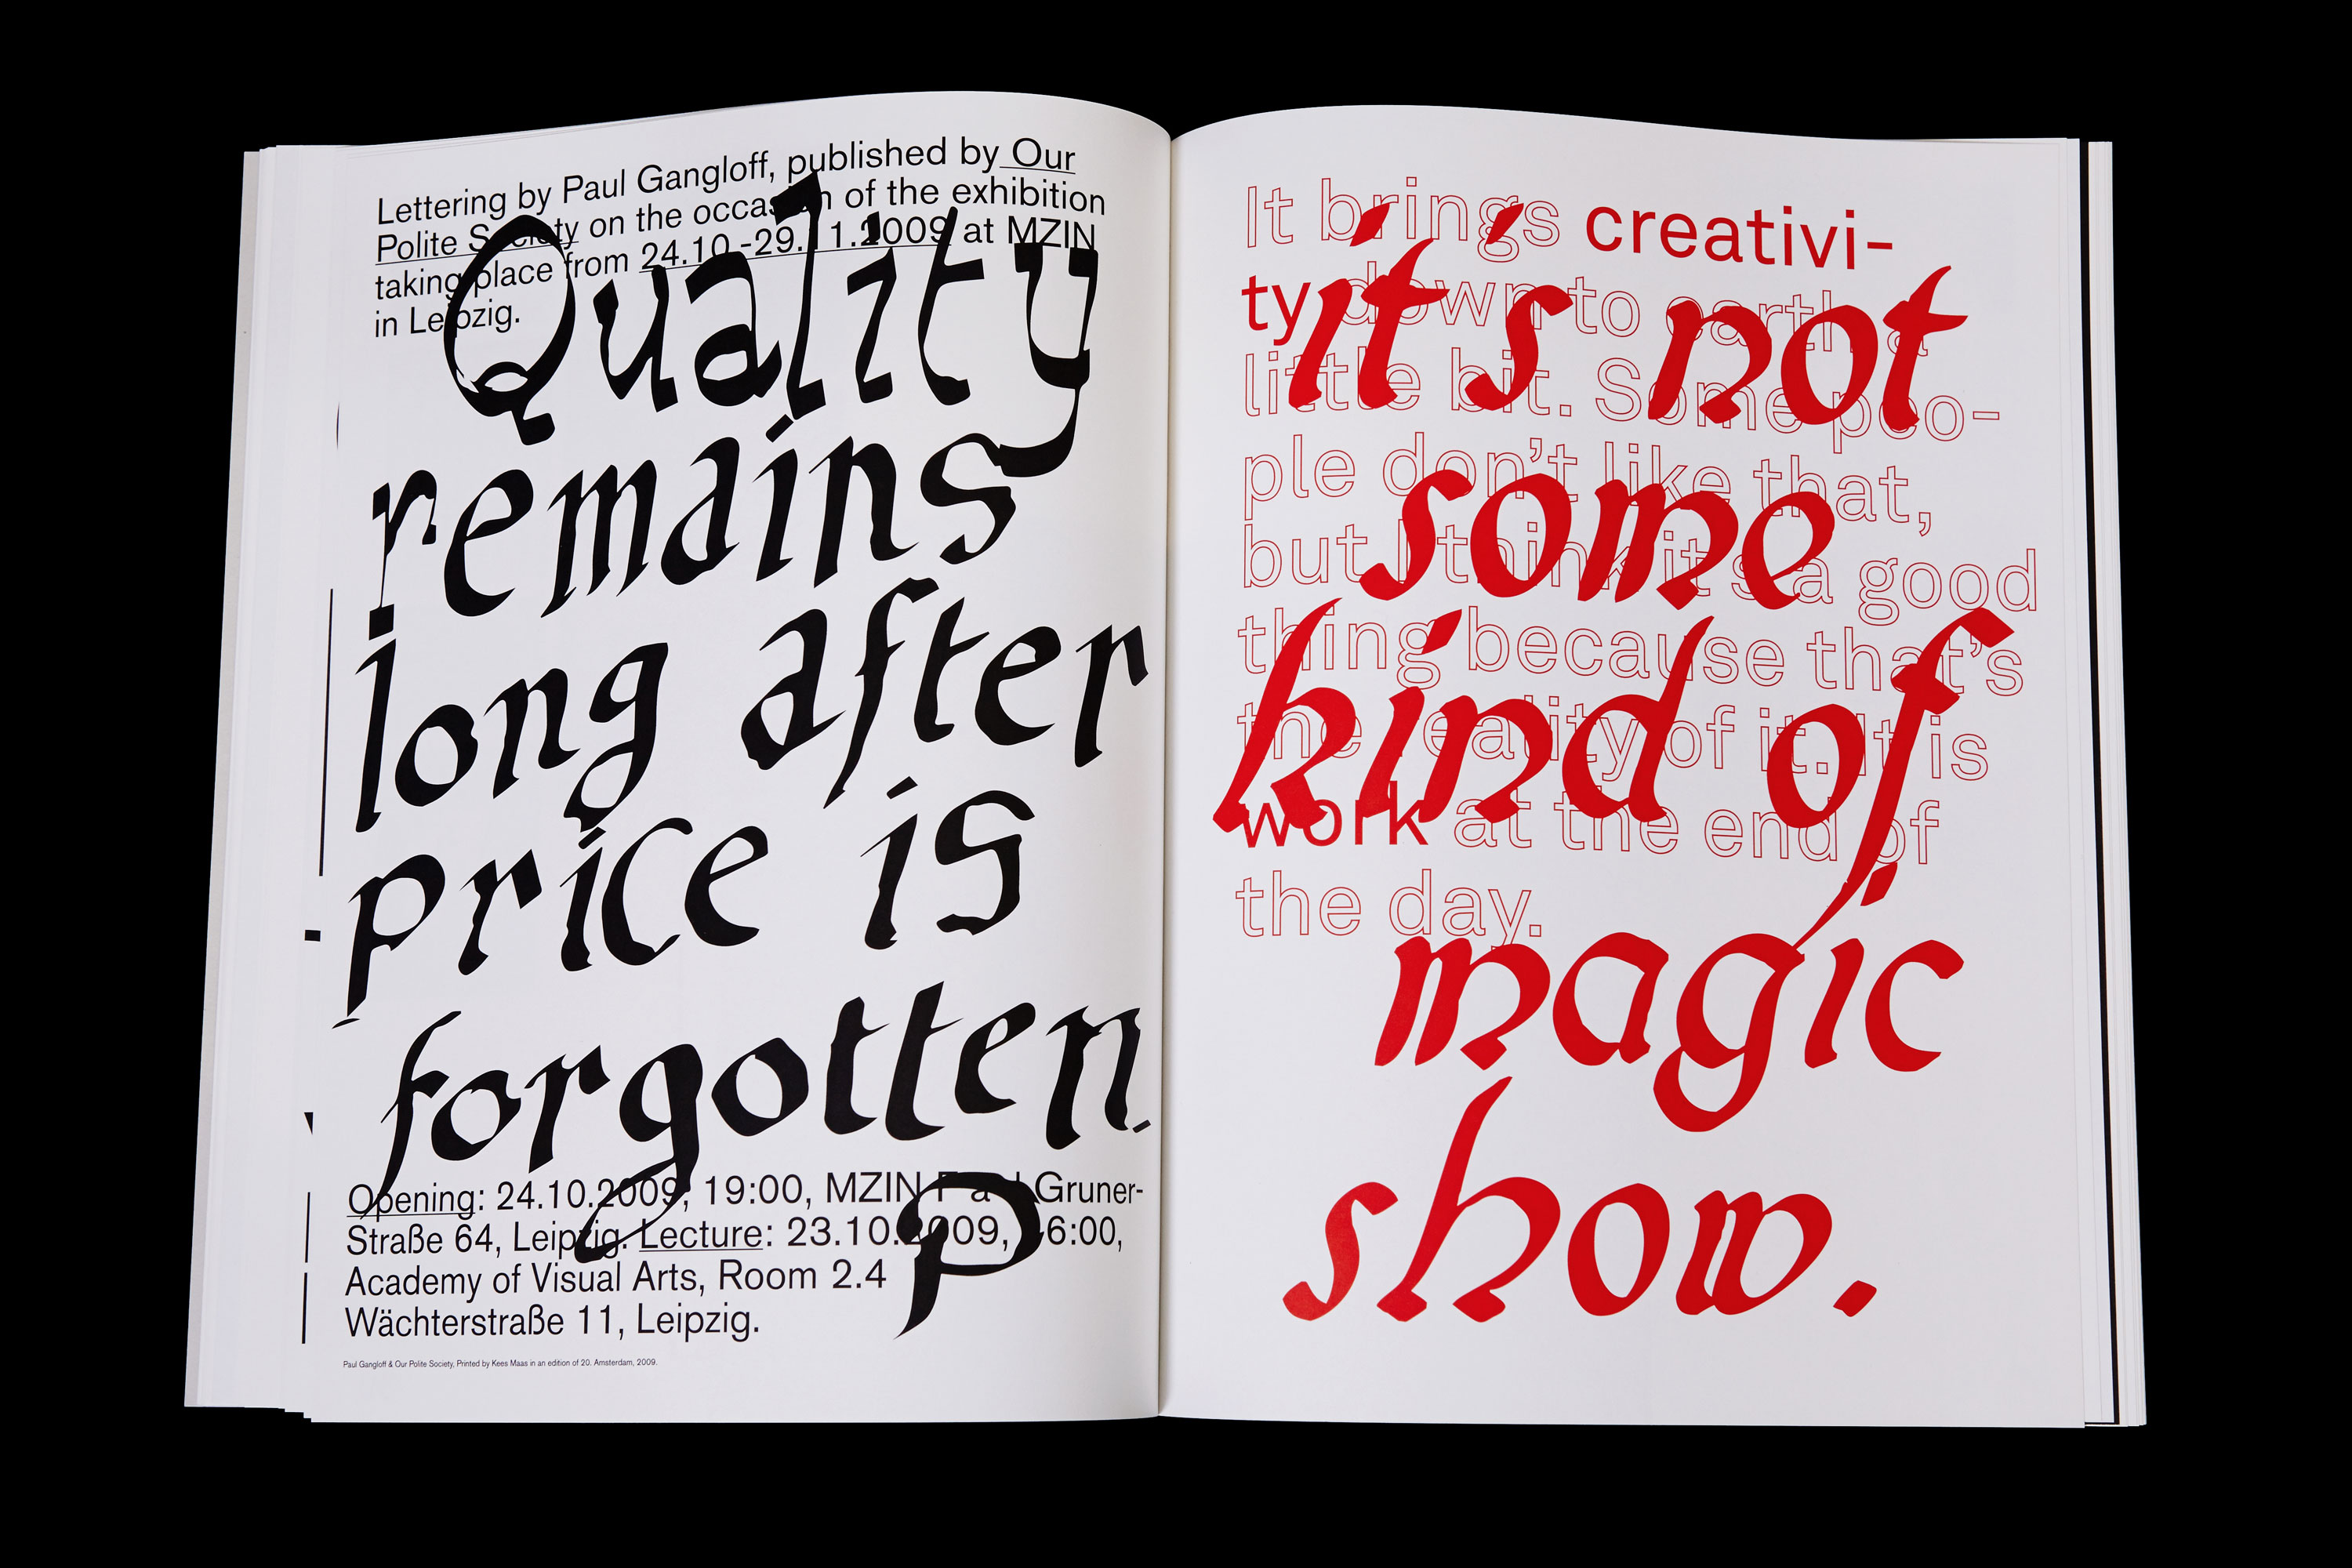 Lettering by Paul Gangloff, published by Our
Polite Society on the occasion of the exhibition
taking place from 24.10.-29.11.2009 at MZIN
in Leipzig.
Quality
remains
long after
price is
forgotten.
Opening: 24.10.2009, 19:00, MZIN Paul Gruner-
Straße 64, Leipzig. Lecture: 23.10.2009, 16:00,
Academy of Visual Arts, Room 2.4
Wächterstraße 11, Leipzig.
P
Paul Gangloff & Our Polite Society, Printed by Kees Maas in an edition of 20. Amsterdam, 2009.
It brings creativi-
ty down to earth a
little bit. Some peo-
ple don't like that,
but I think it's a good
thing because that's
the reality of it. It is
work at the end of
the day.
it's not
some
kind of
magic
show.